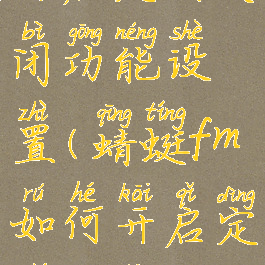 bì gōng néng shè
闭功能设
zhì qīng tíng
置(蜻蜓fm
rú hé kāi qǐ dìng
如何开启定